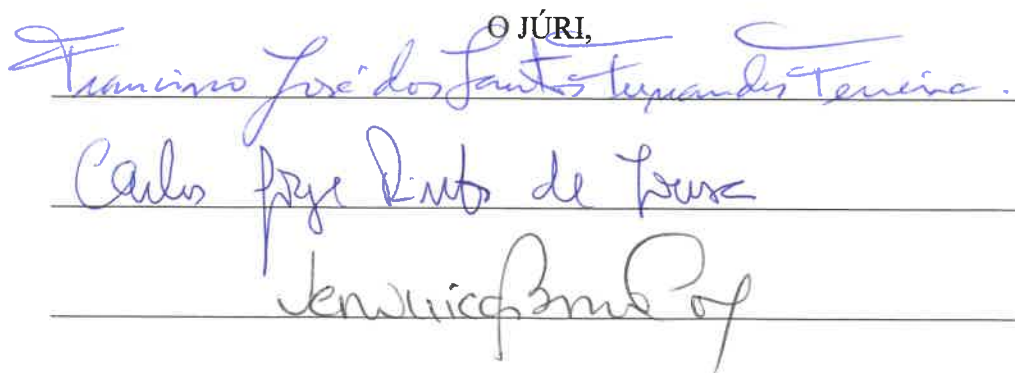 O JÚRI,
Francisco José dos Santos Fernandes Ferreira.
Carlos Jorge Pinto de Sousa